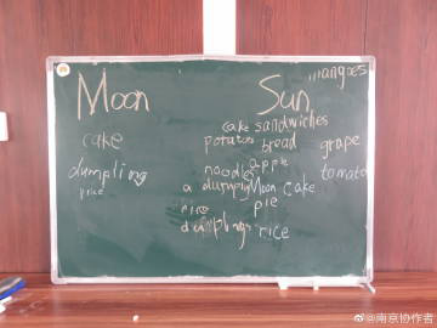 Moon
cake
dumpling
rice
mangoes
Sun
cake sandwiches
potatoes bread grape
noodles apple tomato
a dumpling Moon cake
rice pie
dumplings rice
@南京协作者